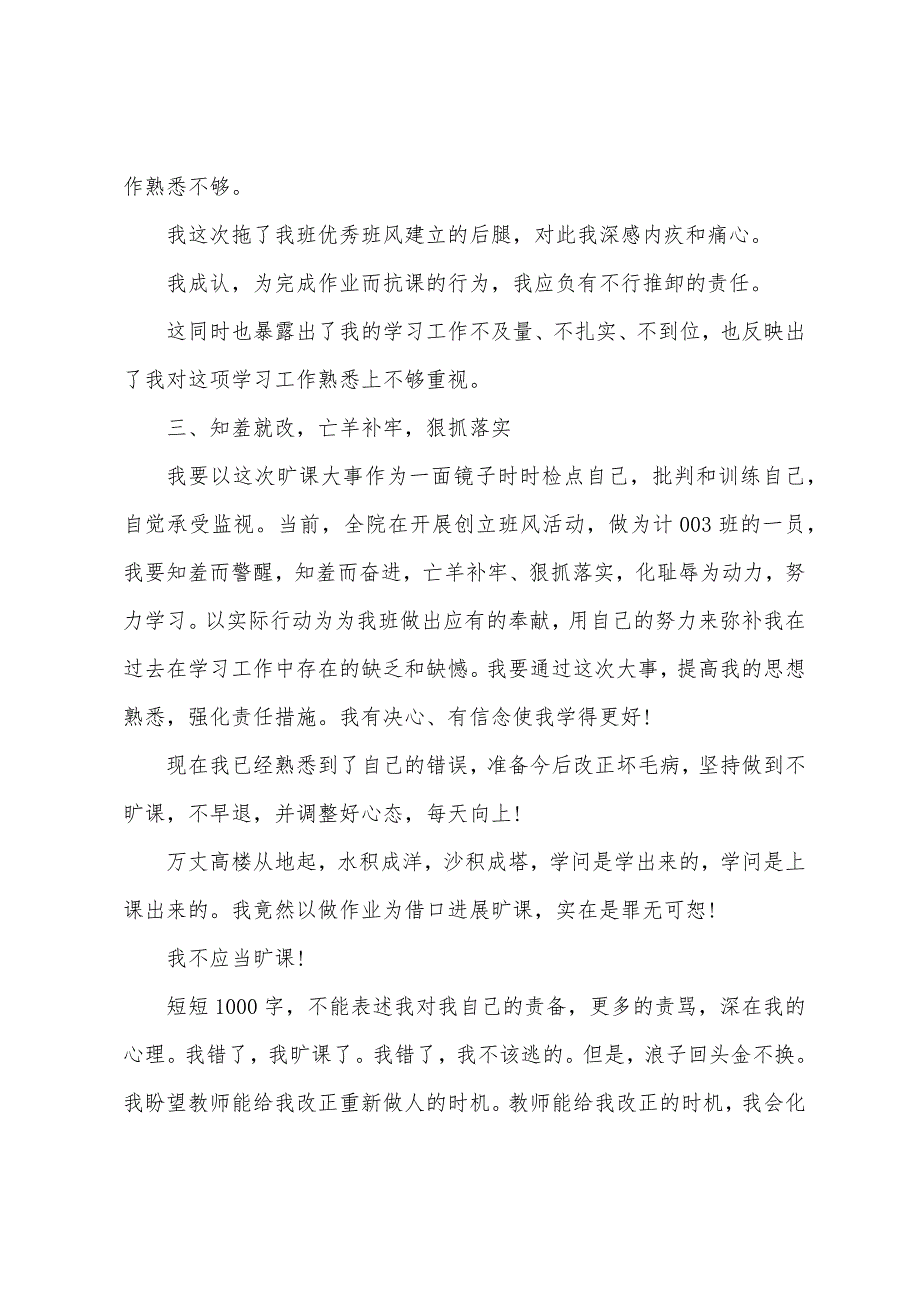 作熟悉不够。
我这次拖了我班优秀班风建立的后腿，对此我深感内疚和痛心。
我成认，为完成作业而抗课的行为，我应负有不行推卸的责任。
这同时也暴露出了我的学习工作不及量、不扎实、不到位，也反映出
了我对这项学习工作熟悉上不够重视。
三、知羞就改，亡羊补牢，狠抓落实
我要以这次旷课大事作为一面镜子时时检点自己，批判和训练自己，
自觉承受监视。当前，全院在开展创立班风活动，做为计 003 班的一员，
我要知羞而警醒，知羞而奋进，亡羊补牢、狠抓落实，化耻辱为动力，努
力学习。以实际行动为为我班做出应有的奉献，用自己的努力来弥补我在
过去在学习工作中存在的缺乏和缺憾。我要通过这次大事，提高我的思想
熟悉，强化责任措施。我有决心、有信念使我学得更好!
现在我已经熟悉到了自己的错误，准备今后改正坏毛病，坚持做到不
旷课，不早退，并调整好心态，每天向上!
万丈高楼从地起，水积成洋，沙积成塔，学问是学出来的，学问是上
课出来的。我竟然以做作业为借口进展旷课，实在是罪无可恕!
我不应当旷课!
短短 1000 字，不能表述我对我自己的责备，更多的责骂，深在我的
心理。我错了，我旷课了。我错了，我不该逃的。但是，浪子回头金不换。
我盼望教师能给我改正重新做人的时机。教师能给我改正的时机，我会化